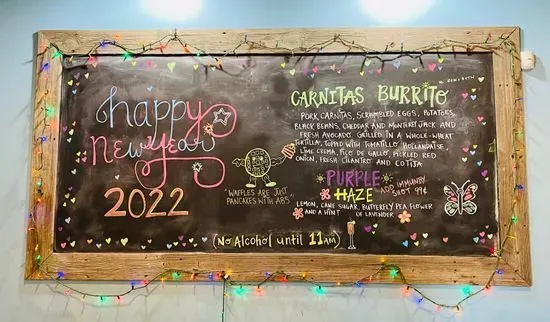 happy
New Year
2022
WAFFLES ARE JUST
PANCAKES WITH ABS
CARNITAS BURRITO
PORK CARNITAS, SCRAMBLED EGGS, POTATOES,
BLACK BEANS, CHEDDAR AND MONTEREY JACK AND
FRESH AVOCADO GRILLED IN A WHOLE-WHEAT
TORTILLA, TOPPED WITH TOMATILLO HOLLANDAISE,
LIME CREMA, PICO DE GALLO, PICKLED RED
ONION, FRESH CILANTRO AND COTIJA
PURPLE
HAZE
ADD IMMUNITY
SHOT 99¢
LEMON, CANE SUGAR, BUTTERFLY PEA FLOWER
AND A HINT OF LAVENDER
(No Alcohol until 11am)